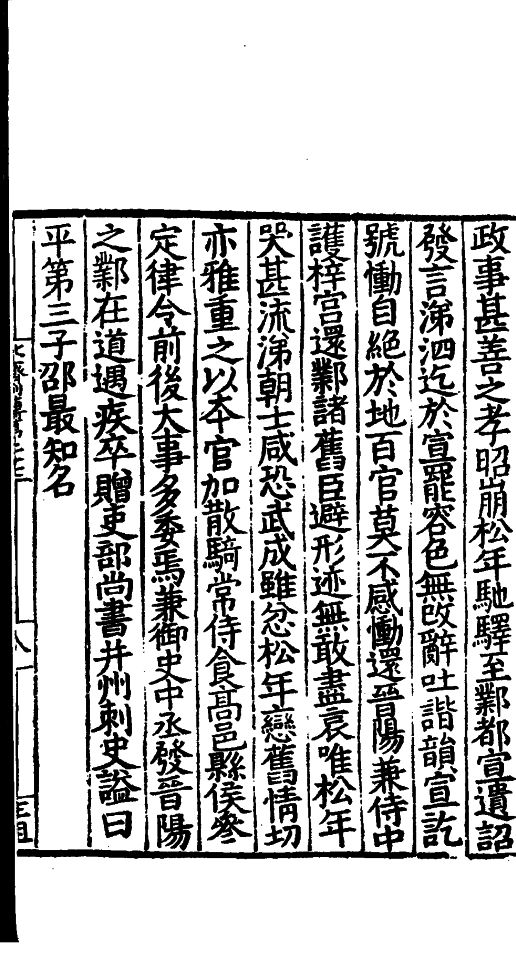 政事甚善之孝昭崩松年馳驛至鄴都宣遺詔
發言涕泗迄於宣罷容色無改辭吐諧韻宣訖
號慟自絶於地百官莫不感慟還晉陽兼侍中
護梓宮還鄴諸舊臣避形迹無敢盡哀唯松年
哭甚流涕朝士咸恐武成雖忿松年戀舊情切
亦雅重之以夲官加散騎常侍食髙邑縣侯叅
定律令前後大事多委焉兼御史中丞發晉陽
之鄴在道遇疾卒贈吏部尚書并州刺史謚曰
平第三子邵最知名
八